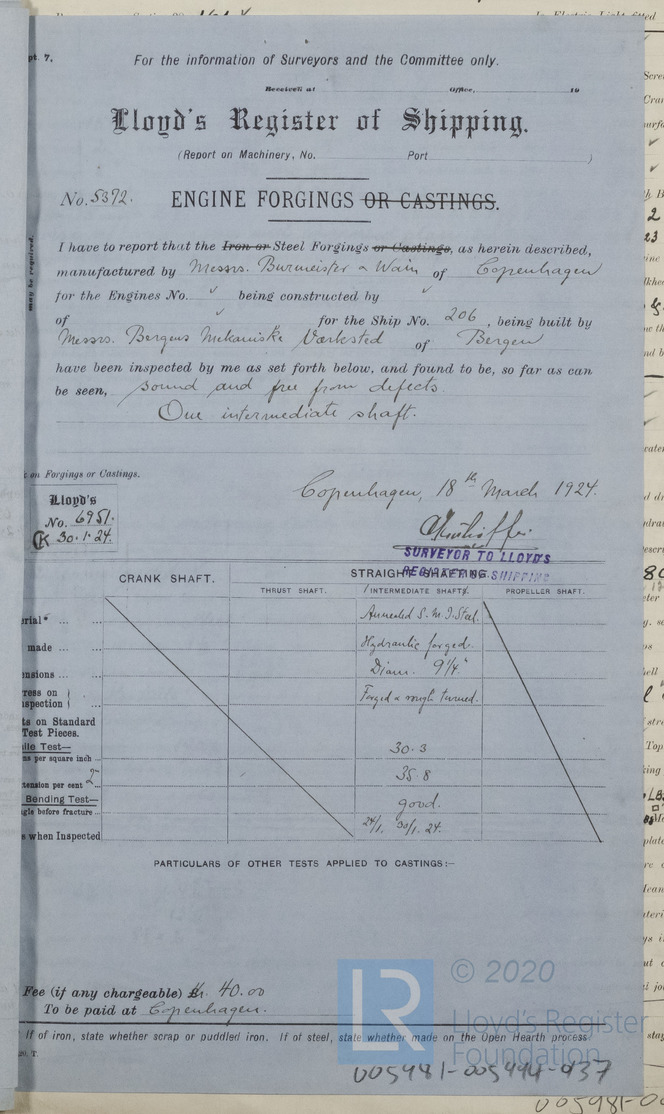 pt. 7.
For the information of Surveyors and the Committee only.
Received at Office, 19
Lloyd's Register of Shipping.
(Report on Machinery, No. Port )
No. 5372. ENGINE FORGINGS OR CASTINGS.
may be required.
I have to report that the Iron or Steel Forgings or Castings, as herein described,
manufactured by Messrs. Burmeister & Wain of Copenhagen
for the Engines No. ✓ being constructed by ✓
of ✓ for the Ship No. 206, being built by
Messrs. Bergens Mekaniske Værksted of Bergen
have been inspected by me as set forth below, and found to be, so far as can
be seen, sound and free from defects.
One intermediate shaft.
on Forgings or Castings.
Lloyd's
No. 6951.
30.1.24.
Copenhagen, 18th March 1924.
SURVEYOR TO LLOYD'S
REGISTER OF SHIPPING
CRANK SHAFT. STRAIGHT SHAFTING.
THRUST SHAFT. 1 INTERMEDIATE SHAFTS. PROPELLER SHAFT.
rial* ... ... Annealed S. M. I. Steel.
made ... ... Hydraulic forged.
nsions ... ... Diam. 9 1/4"
ress on
spection ... Forged & rough turned.
ts on Standard
Test Pieces.
ile Test—
ns per square inch ... 30.3
tension per cent 2" ... 35.8
Bending Test—
gle before fracture ... good.
s when Inspected 24/1. 30/1. 24.
PARTICULARS OF OTHER TESTS APPLIED TO CASTINGS:—
Fee (if any chargeable) Kr. 40.00
To be paid at Copenhagen.
If of iron, state whether scrap or puddled iron. If of steel, state whether made on the Open Hearth process
LR
© 2020
Lloyd's Register
Foundation
005981-005994-037